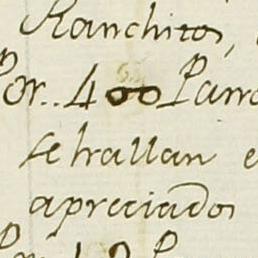 Ranchitos,
Por.. 400 Parra
se hallan e
apreciados